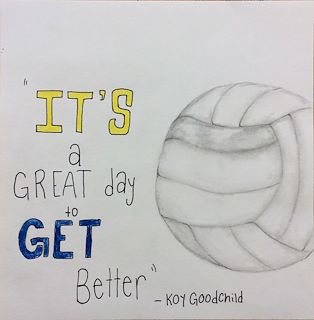 "IT'S
a
GREAT day
to
GET
Better"
- KOY GOODCHILD